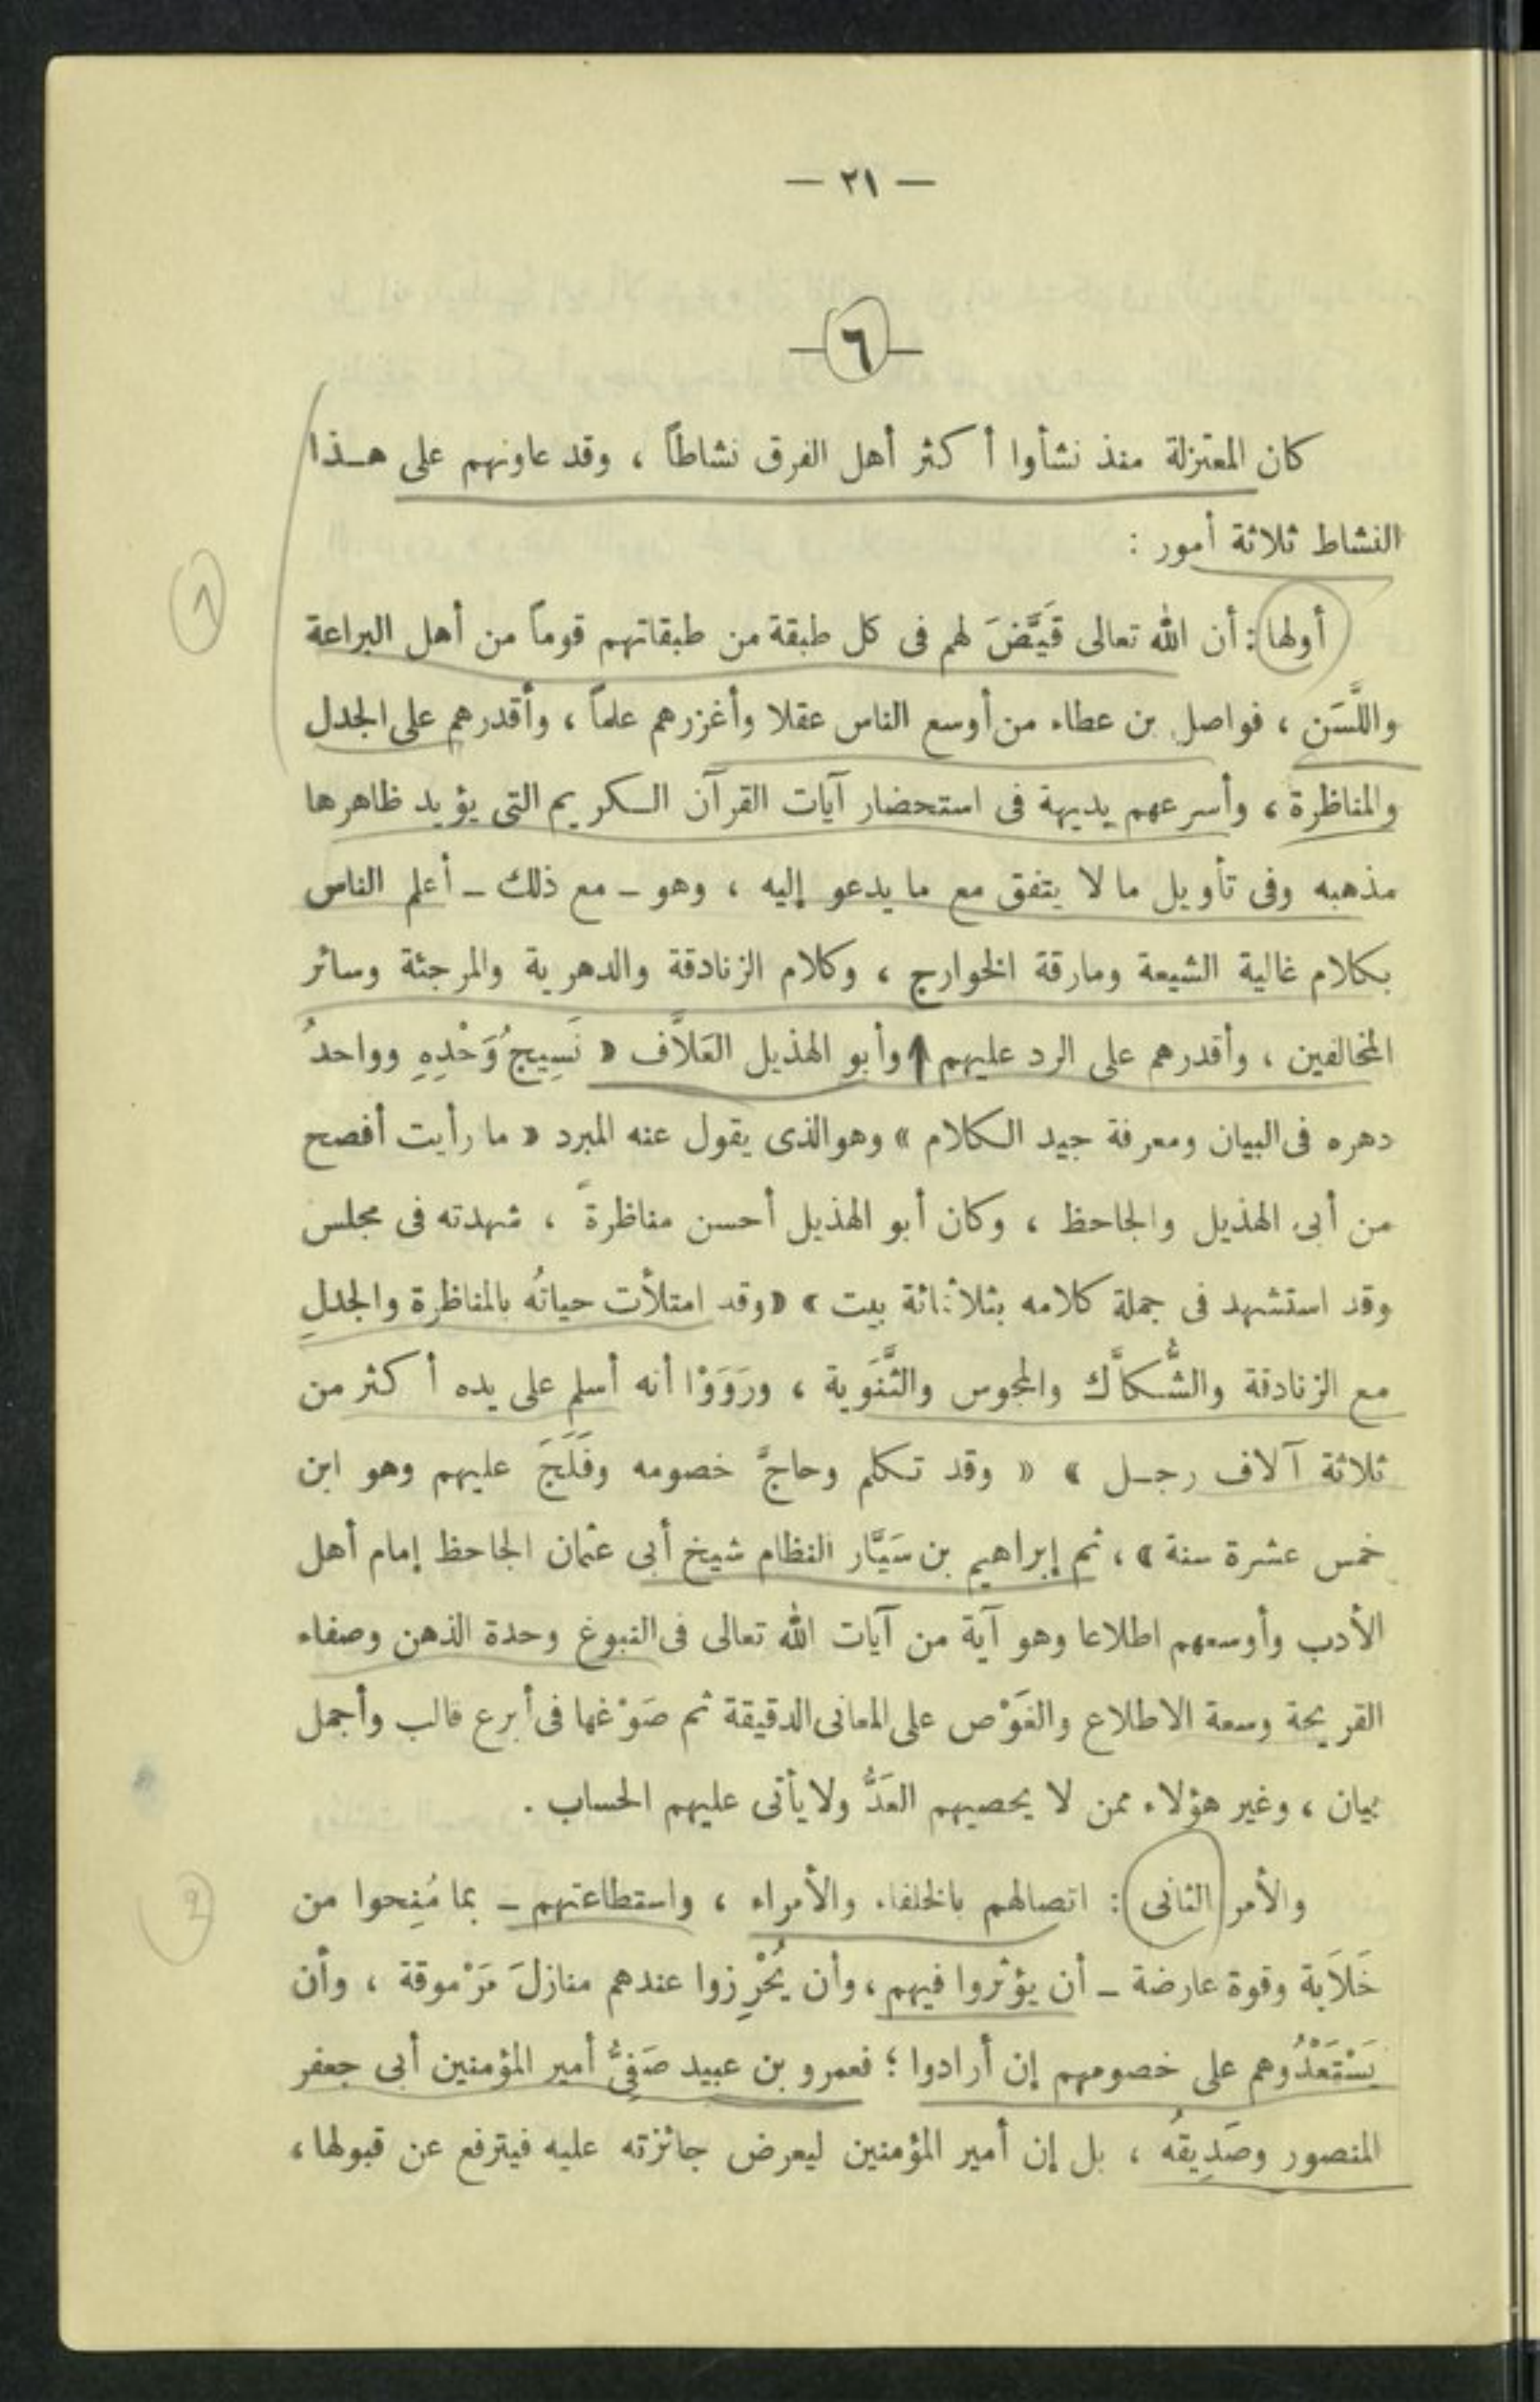 — ٢١ —
— ٦ —
كان المعتزلة منذ نشأوا أكثر أهل الفرق نشاطاً ، وقد عاونهم على هذا
النشاط ثلاثة أمور :
أولها : أن الله تعالى قَيَّضَ لهم فى كل طبقة من طبقاتهم قوماً من أهل البراعة
1
واللَّسَن ، فواصل بن عطاء من أوسع الناس عقلا وأغزرهم علماً ، وأقدرهم على الجدل
والمناظرة ، وأسرعهم بديهة فى استحضار آيات القرآن الكريم التى يؤيد ظاهرها
مذهبه وفى تأويل ما لا يتفق مع ما يدعو إليه ، وهو – مع ذلك – أعلم الناس
بكلام غالية الشيعة ومارقة الخوارج ، وكلام الزنادقة والدهرية والمرجئة وسائر
المخالفين ، وأقدرهم على الرد عليهم وأبو الهذيل العَلاَّف « نَسِيجُ وَحْدِهِ وواحدُ
دهره فى البيان ومعرفة جيد الكلام » وهو الذى يقول عنه المبرد « ما رأيت أفصح
من أبى الهذيل والجاحظ ، وكان أبو الهذيل أحسن مناظرةً ، شهدته فى مجلس
وقد استشهد فى جملة كلامه بثلاثمائة بيت » « وقد امتلأت حياتُه بالمناظرة والجدلِ
مع الزنادقة والشُّكاَّك والمجوس والثَّنَوية ، ورَوَوْا أنه أسلم على يده أكثر من
ثلاثة آلاف رجل » « وقد تكلم وحاجَّ خصومه وفَلَجَ عليهم وهو ابن
خمس عشرة سنة » ، ثم إبراهيم بن سَيَّار النظام شيخ أبى عثمان الجاحظ إمام أهل
الأدب وأوسعهم اطلاعا وهو آية من آيات الله تعالى فى النبوغ وحدة الذهن وصفاء
القريحة وسعة الاطلاع والغَوْص على المعانى الدقيقة ثم صَوْغها فى أبرع قالب وأجمل
بيان ، وغير هؤلاء ممن لا يحصيهم العَدُّ ولا يأتى عليهم الحساب .
والأمر الثانى : اتصالهم بالخلفاء والأمراء ، واستطاعتهم – بما مُنِحوا من
2
خَلاَبة وقوة عارضة – أن يؤثروا فيهم ، وأن يُحْرِزوا عندهم منازلَ مَرْموقة ، وأن
يَسْتَعْدُوهم على خصومهم إن أرادوا ؛ فعمرو بن عبيد صَفِىُّ أمير المؤمنين أبى جعفر
المنصور وصَدِيقُه ، بل إن أمير المؤمنين ليعرض جائزته عليه فيترفع عن قبولها ،